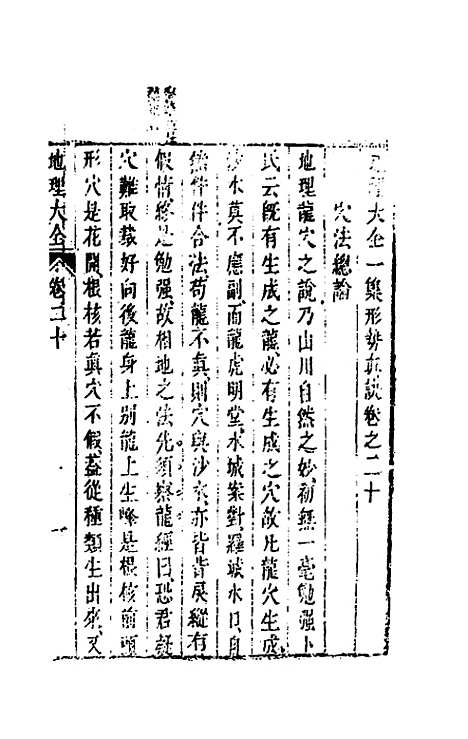 地理大全一集形勢真訣卷之二十
穴法總論
地理龍穴之說乃山川自然之妙初無一毫勉强卜
氏云旣有生成之龍必有生成之穴故凡龍穴生成
沙水莫不應副而龍虎明堂水城案對羅城水口自
然件件合法苟龍不真則穴與沙水亦皆皆戾縱有
假情終是勉强故相地之法先須察龍經曰恐君疑
穴難取裁好向後龍身上别龍上生峰是根核前頭
形穴是花開根核若真穴不假葢從種類生出來又
地理大全 卷二十 一